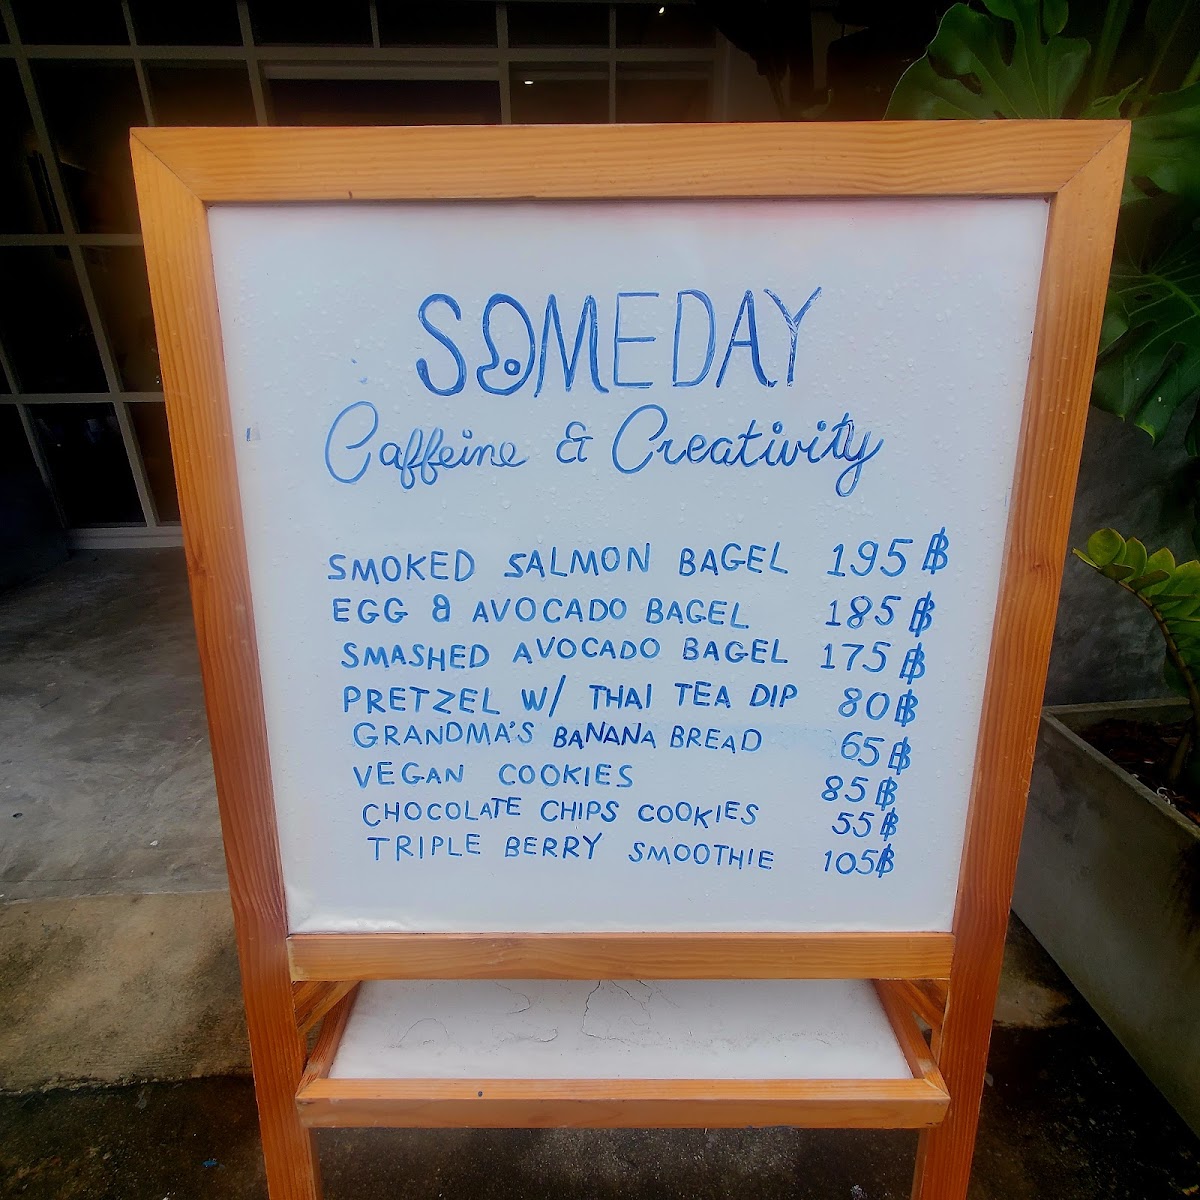 SOMEDAY
Caffeine & Creativity
SMOKED SALMON BAGEL 195฿
EGG & AVOCADO BAGEL 185฿
SMASHED AVOCADO BAGEL 175฿
PRETZEL W/ THAI TEA DIP 80฿
GRANDMA'S BANANA BREAD 65฿
VEGAN COOKIES 85฿
CHOCOLATE CHIPS COOKIES 55฿
TRIPLE BERRY SMOOTHIE 105฿